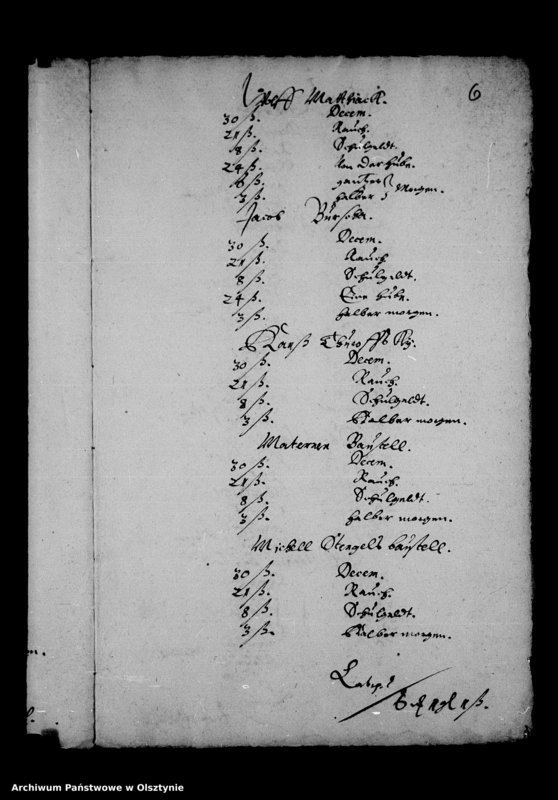 6
Matthiack.
30 ß. Decem.
21 ß. Rauch.
8 ß. Schulgeldt.
24 ß. Von der Hube.
6 ß. gantzer
3 ß. halber Morgen.
Jacob
30 ß. Decem.
21 ß. Rauch
8 ß. Schulgeldt.
24 ß. Eine Hube.
3 ß. halber morgen.
30 ß. Decem.
21 ß. Rauch.
8 ß. Schulgeldt.
3 ß. Halber morgen.
Maternen Baustell.
30 ß. Decem.
21 ß. Rauch.
8 ß. Schulgeldt.
3 ß. halber morgen.
Michell Stengels baustell.
30 ß. Decem.
21 ß. Rauch.
8 ß. Schulgeldt.
3 ß. Halber morgen.
Archiwum Państwowe w Olsztynie